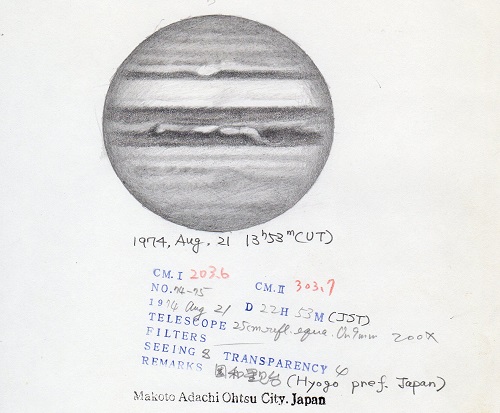 1974, Aug. 21 13h53m(UT)
CM. I 203.6 CM. II 303.7
NO. 74-75
1974 Aug 21 D 22H 53M (JST)
TELESCOPE 25cm refl. equa. Or 9mm 200X
FILTERS
SEEING 8 TRANSPARENCY 4
REMARKS (Hyogo pref. Japan)
Makoto Adachi Ohtsu City. Japan